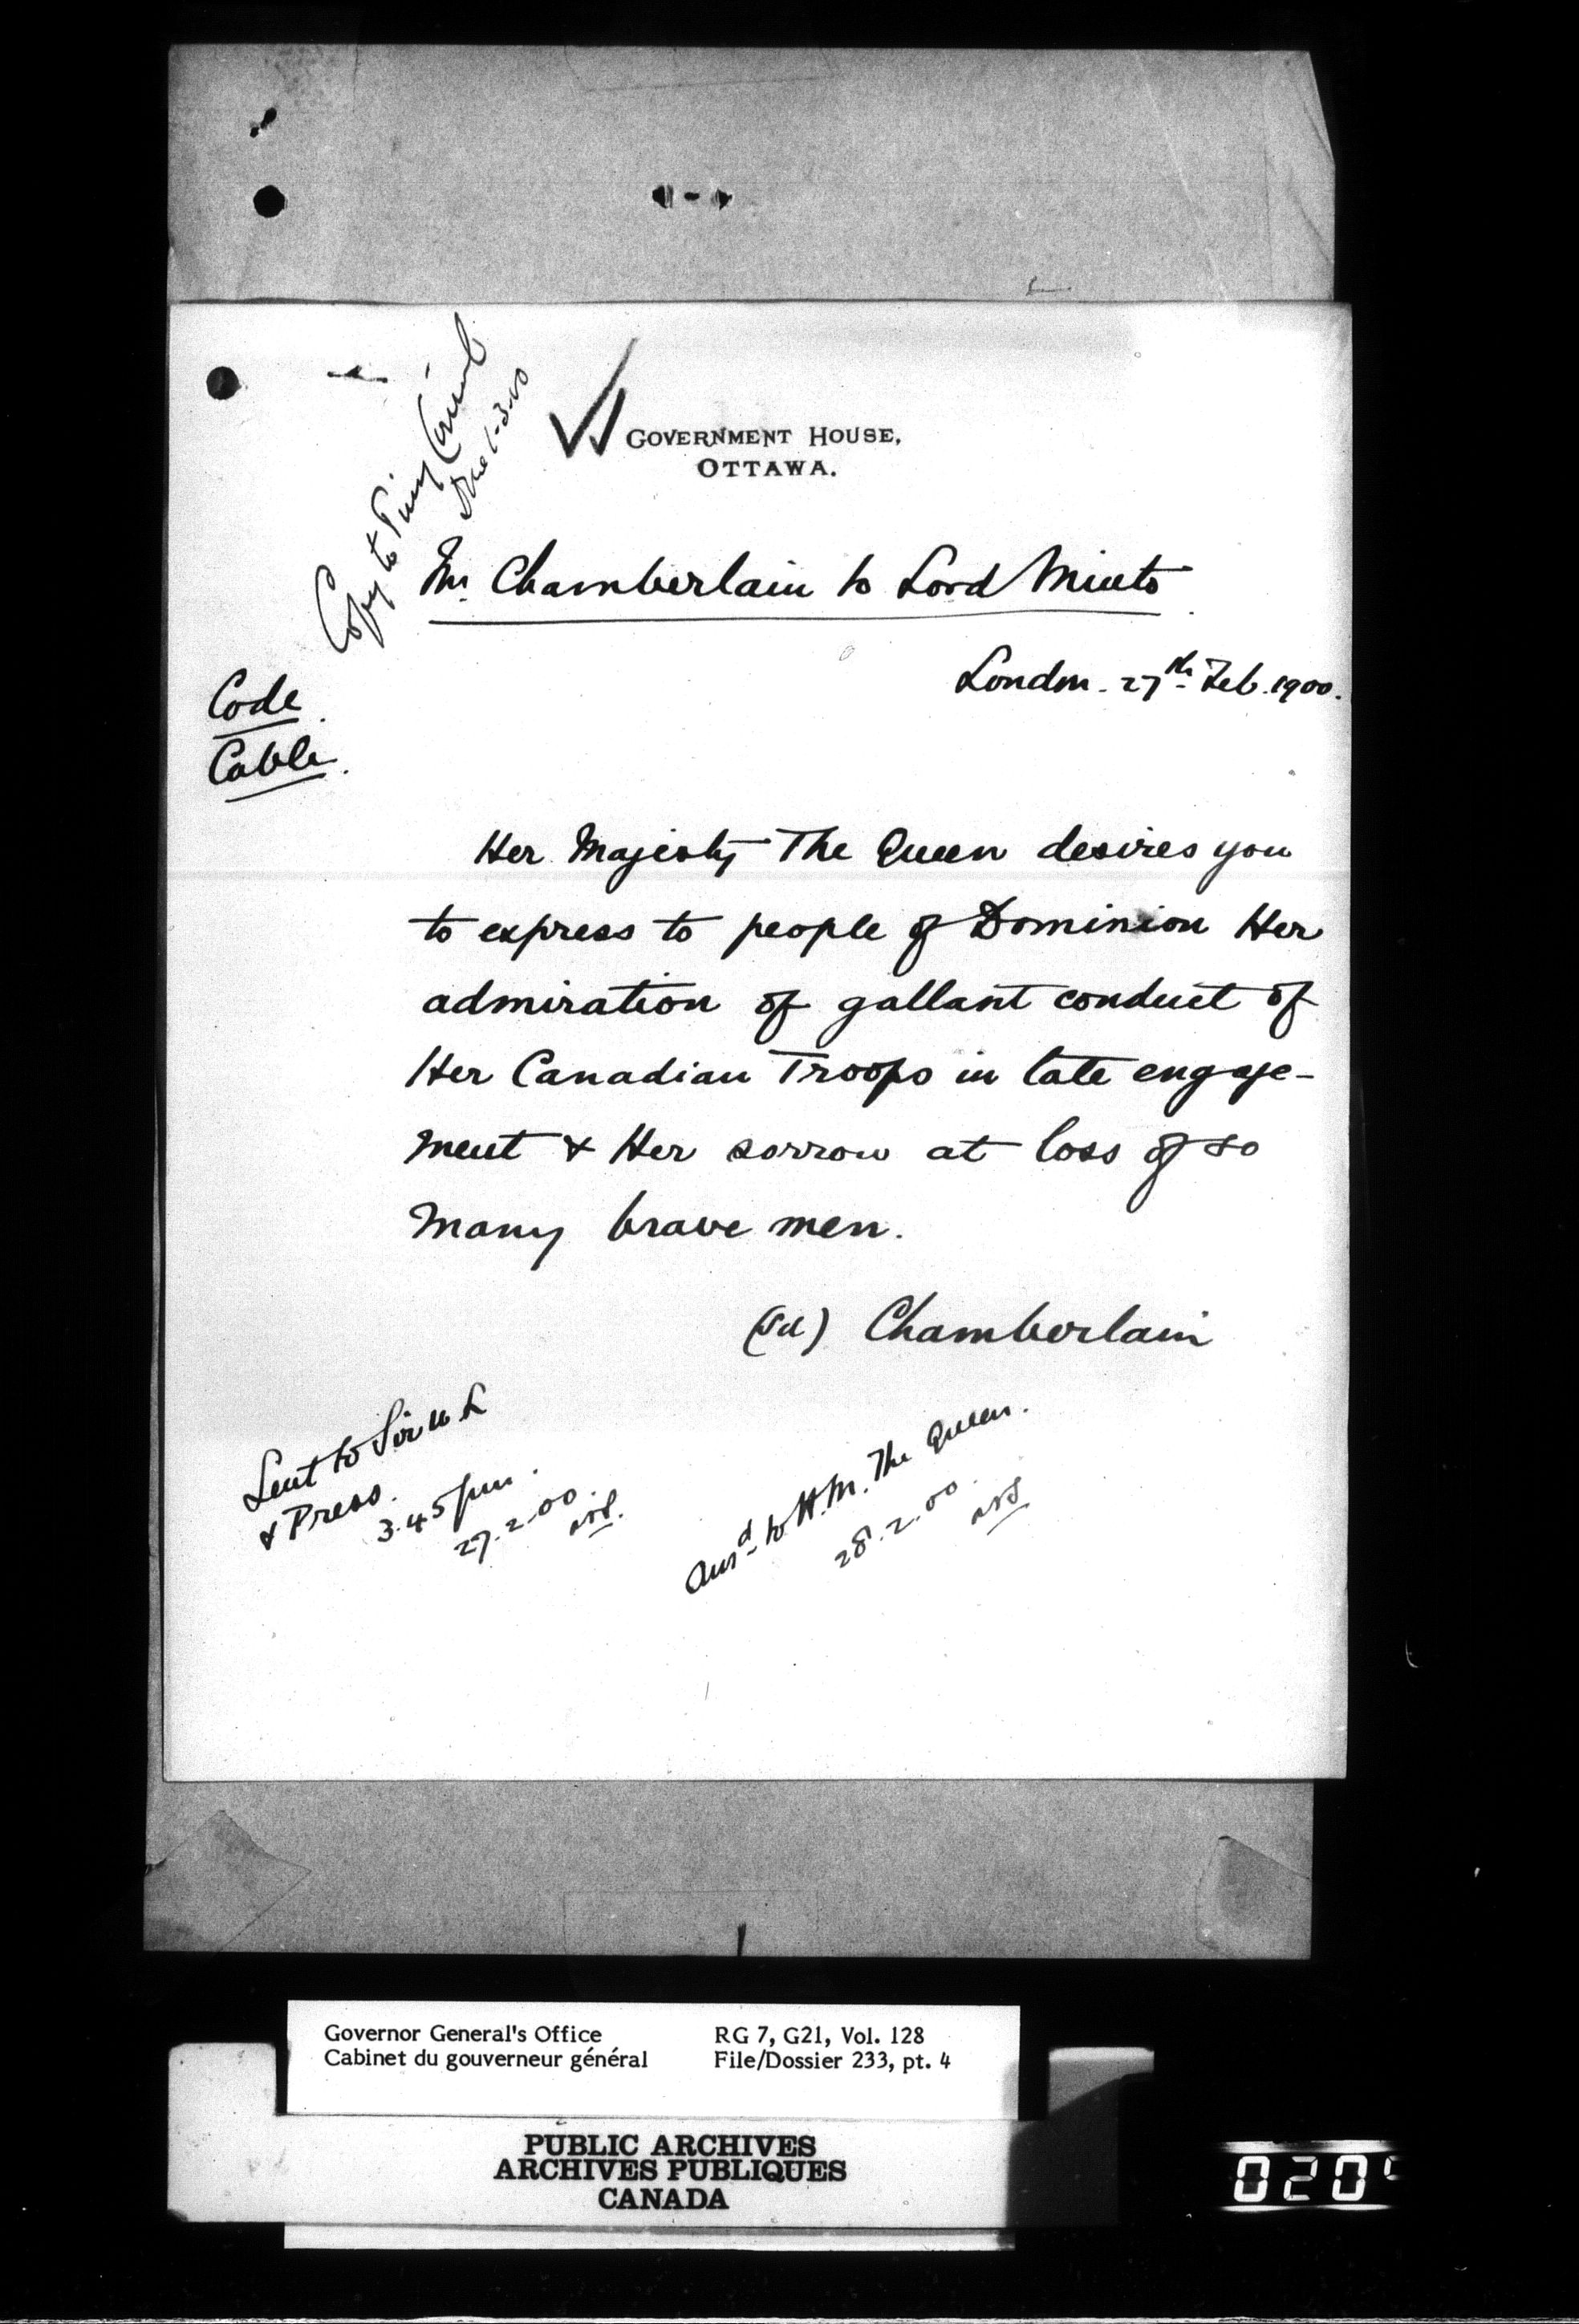 Copy to Privy Council
1-3-00
GOVERNMENT HOUSE,
OTTAWA.
Mr. Chamberlain to Lord Minto
London. 27th Feb. 1900.
Code
Cable.
Her Majesty The Queen desires you
to express to people of Dominion Her
admiration of gallant conduct of
Her Canadian Troops in late engage-
ment & Her sorrow at loss of so
many brave men.
(Sd) Chamberlain
Sent to Sir W L
& Press.
3.45 pm.
27.2.00.
Ansd to H.M. The Queen.
28.2.00.
Governor General's Office
Cabinet du gouverneur général
RG 7, G21, Vol. 128
File/Dossier 233, pt. 4
PUBLIC ARCHIVES
ARCHIVES PUBLIQUES
CANADA
020